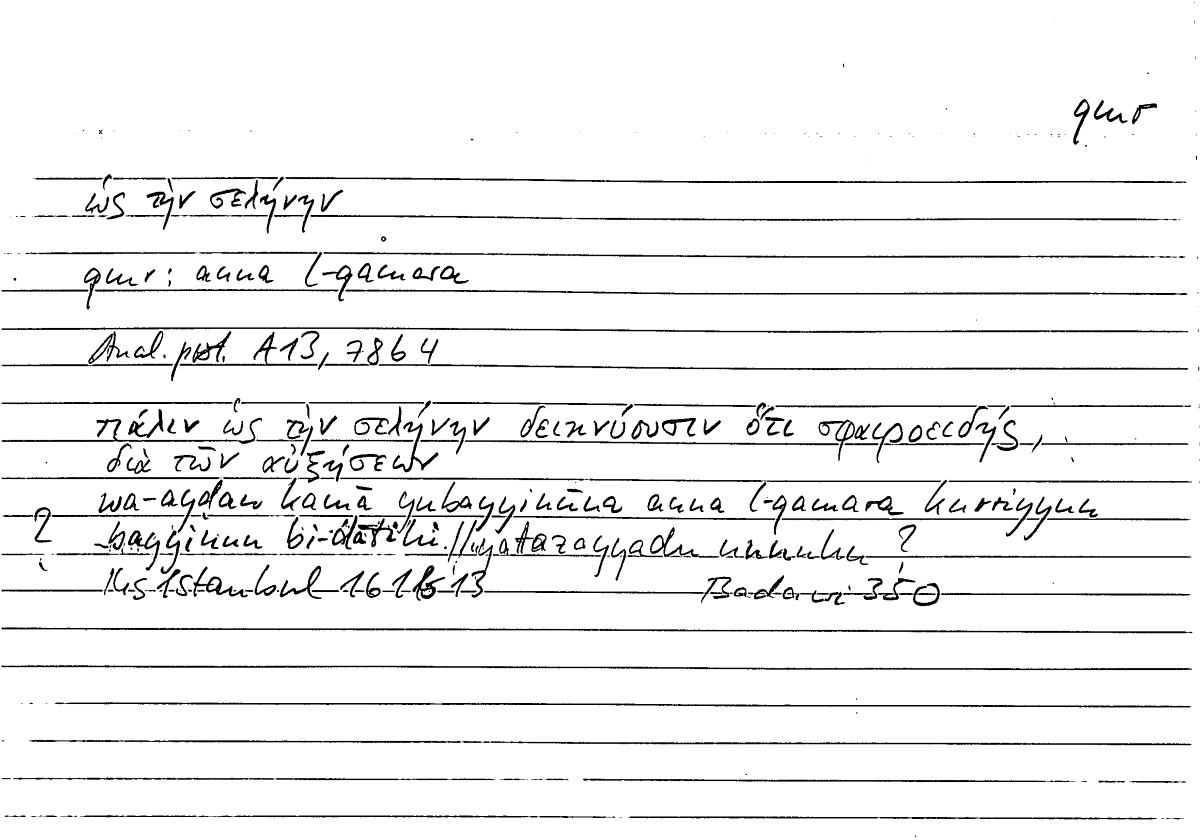 qmr
ὡς τὴν σελήνην
qmr: anna l-qamara
Anal. post. A13, 78b4
πάλιν ὡς τὴν σελήνην δεικνύουσιν ὅτι σφαιροειδής,
διὰ τῶν αὐξήσεων
wa-ayḍan kamā yubayyinūna anna l-qamara kurriyyun
? bayyinun bi-ḏātihi // yatazayyadu ?
Hs Istanbul 1613 Badawi 350